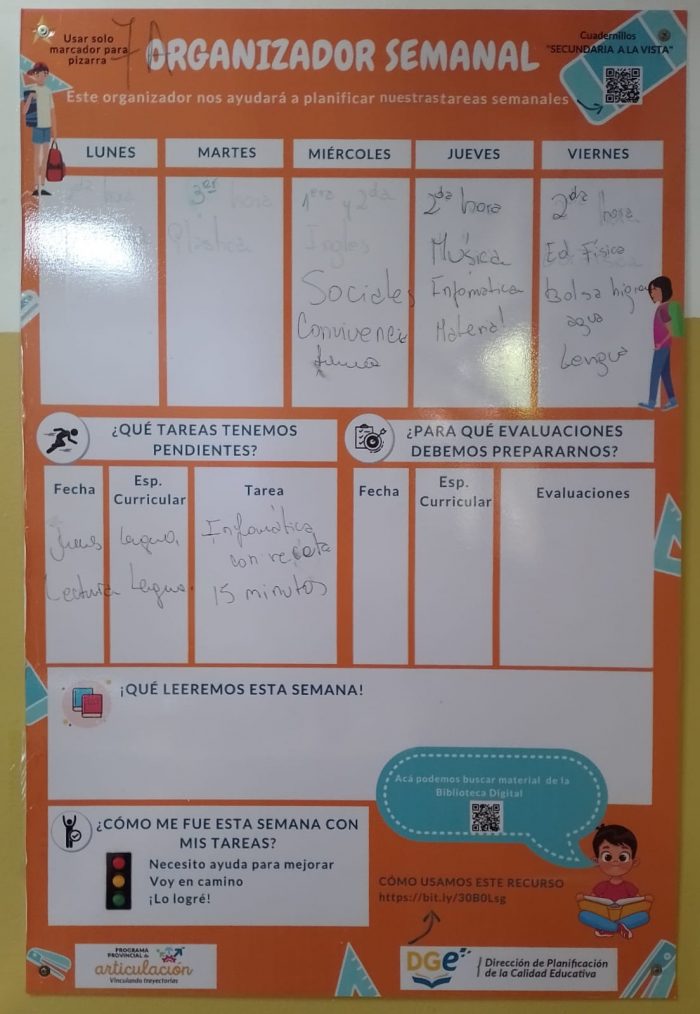 Usar solo
marcador para
pizarra
7A
ORGANIZADOR SEMANAL
Cuadernillos
"SECUNDARIA A LA VISTA"
Este organizador nos ayudará a planificar nuestras tareas semanales
LUNES
MARTES
MIÉRCOLES
JUEVES
VIERNES
hora
3er hora
Plástica
1era y 2da
Ingles
Sociales
Convivenci
2da hora
Música
Infomática
Material
2da hora
Ed. Física
Bolsa higien
agua
Lengua
¿QUÉ TAREAS TENEMOS
PENDIENTES?
Fecha
Esp.
Curricular
Tarea
Lengua
Infomática
con
Lectura
Lengua.
15 minutos
¿PARA QUÉ EVALUACIONES
DEBEMOS PREPARARNOS?
Fecha
Esp.
Curricular
Evaluaciones
¡QUÉ LEEREMOS ESTA SEMANA!
Acá podemos buscar material de la
Biblioteca Digital
¿CÓMO ME FUE ESTA SEMANA CON
MIS TAREAS?
Necesito ayuda para mejorar
Voy en camino
¡Lo logré!
CÓMO USAMOS ESTE RECURSO
https://bit.ly/30B0Lsg
PROGRAMA
PROVINCIAL de
articulación
Vinculando trayectorias
DGe
Dirección de Planificación
de la Calidad Educativa